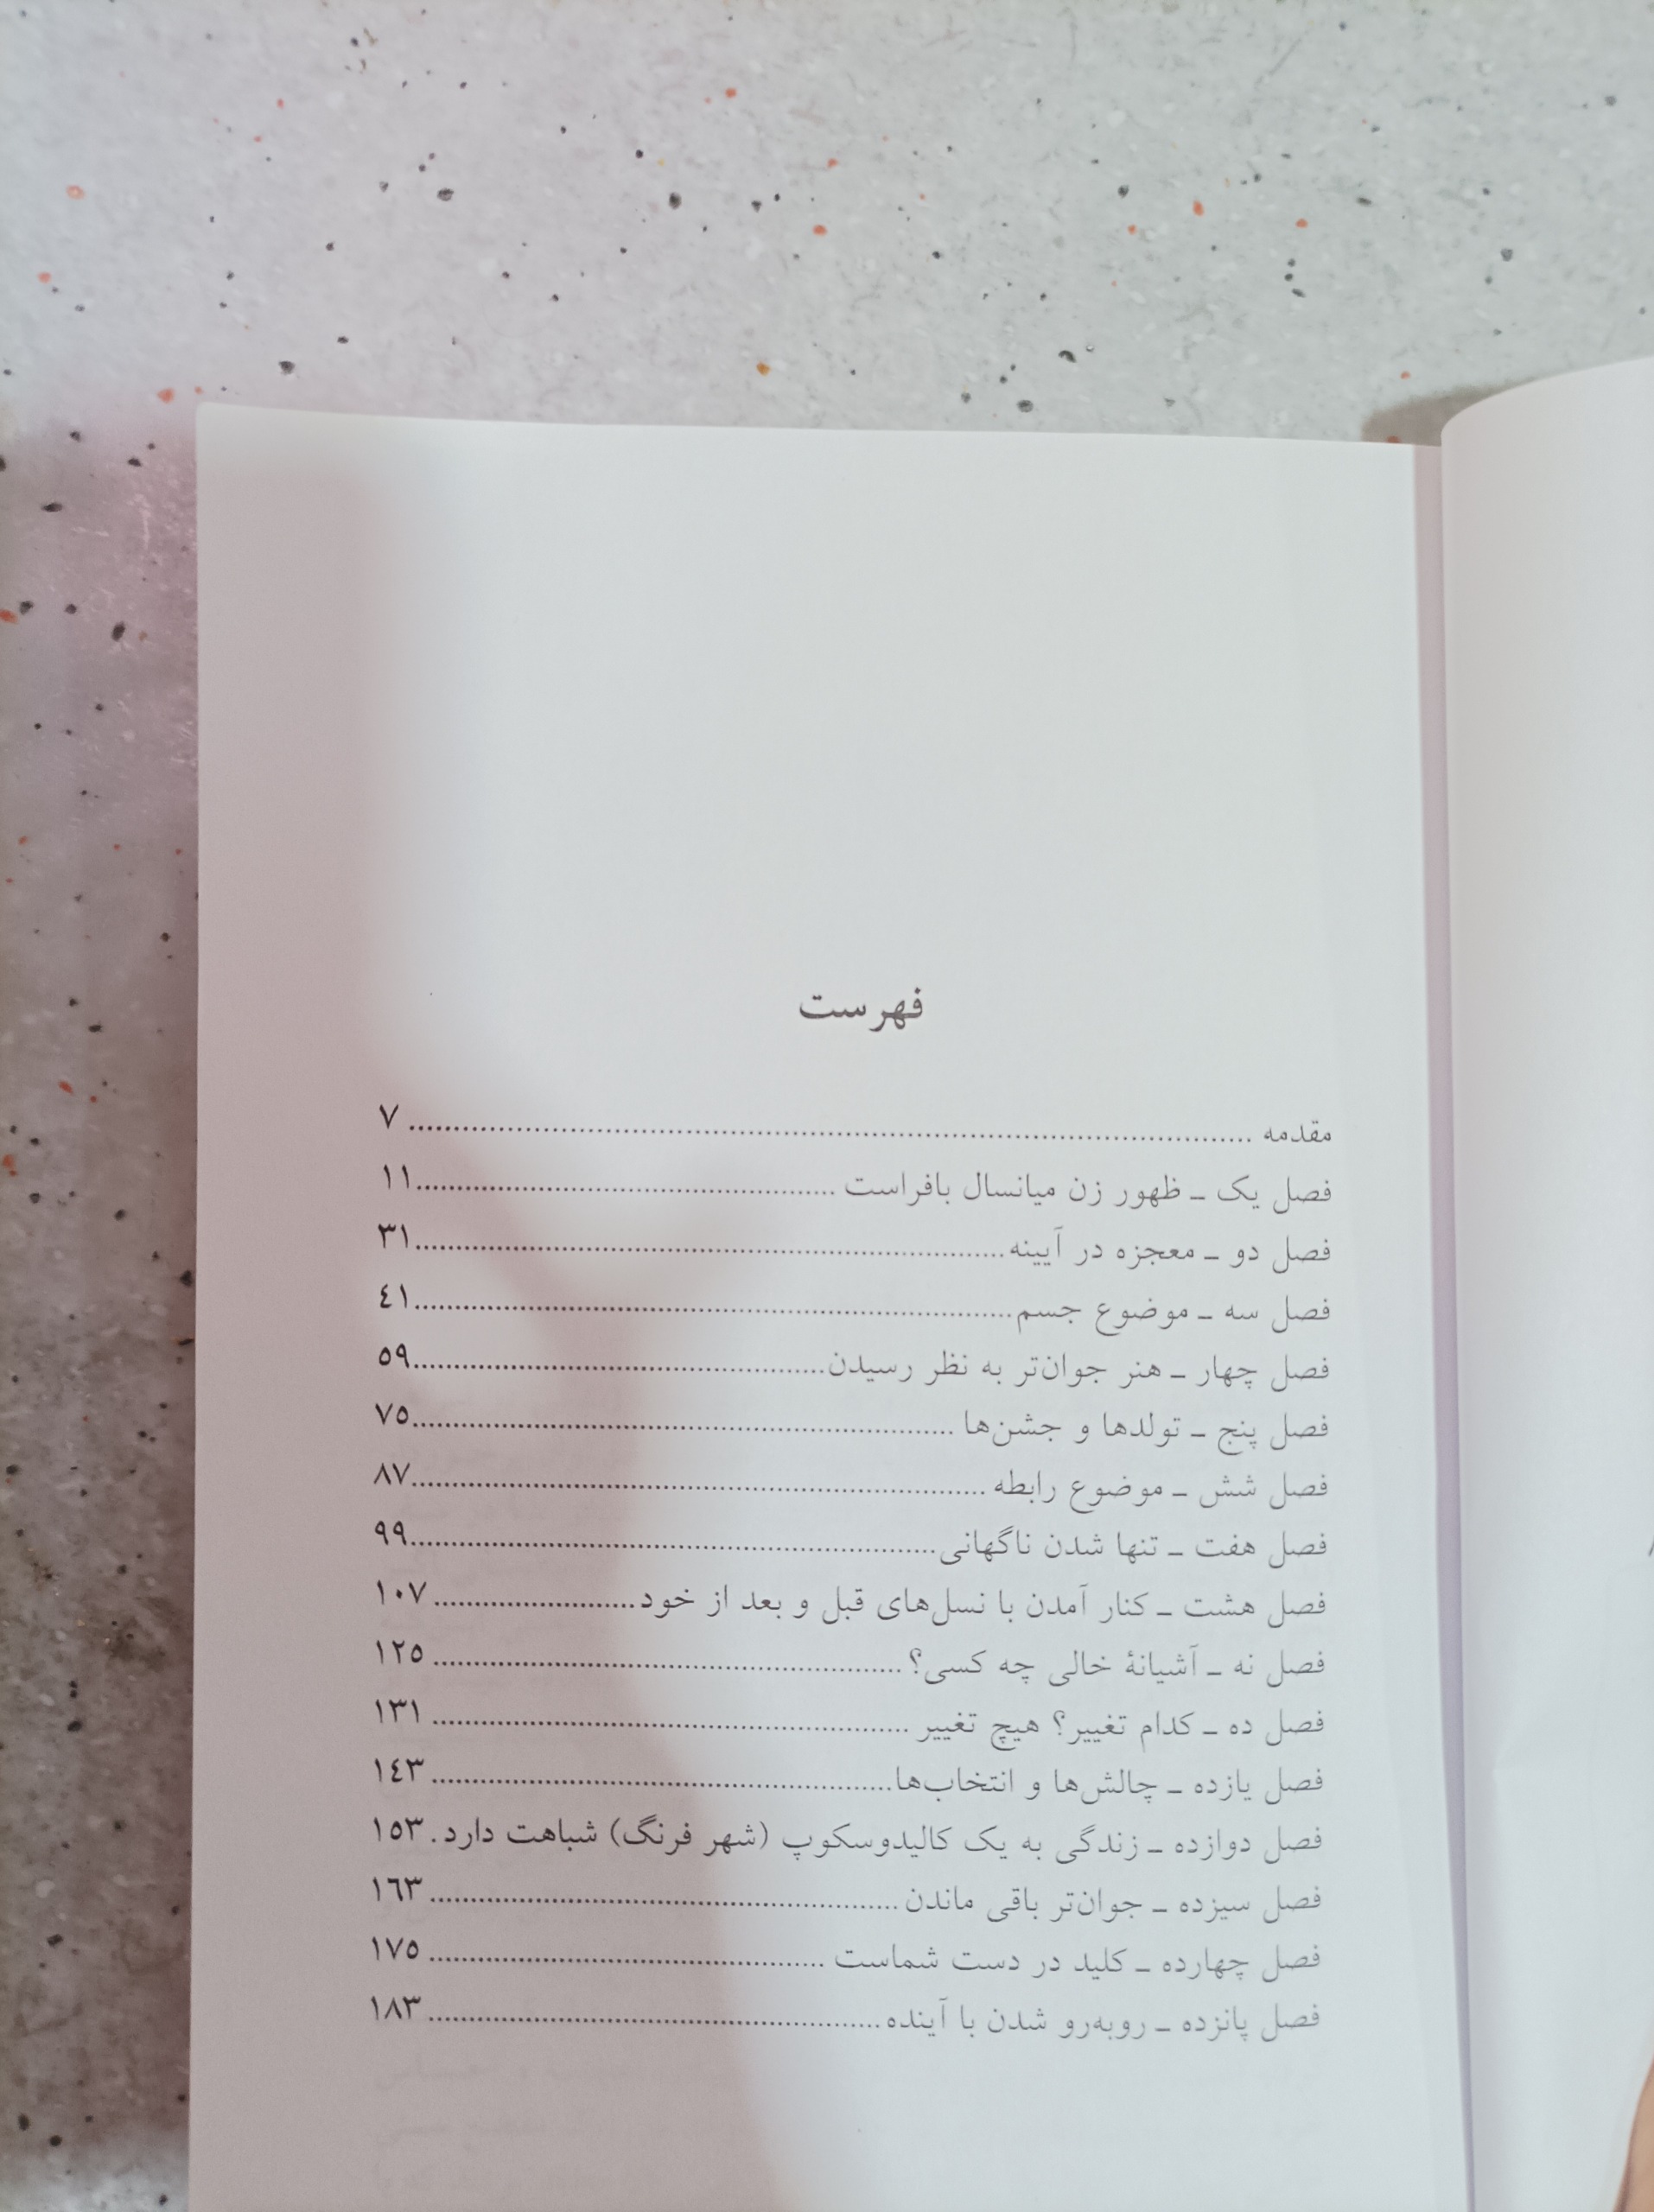 فهرست
مقدمه ........................................ ٧
فصل یک ـ ظهور زن میانسال بافراست ........................................ ١١
فصل دو ـ معجزه در آیینه ........................................ ٣١
فصل سه ـ موضوع جسم ........................................ ٤١
فصل چهار ـ هنر جوان‌تر به نظر رسیدن ........................................ ٥٩
فصل پنج ـ تولدها و جشن‌ها ........................................ ٧٥
فصل شش ـ موضوع رابطه ........................................ ٨٧
فصل هفت ـ تنها شدن ناگهانی ........................................ ٩٩
فصل هشت ـ کنار آمدن با نسل‌های قبل و بعد از خود ........................ ١٠٧
فصل نه ـ آشیانهٔ خالی چه کسی؟ ........................................ ١٢٥
فصل ده ـ کدام تغییر؟ هیچ تغییر ........................................ ١٣١
فصل یازده ـ چالش‌ها و انتخاب‌ها ........................................ ١٤٣
فصل دوازده ـ زندگی به یک کالیدوسکوپ (شهر فرنگ) شباهت دارد . ١٥٣
فصل سیزده ـ جوان‌تر باقی ماندن ........................................ ١٦٣
فصل چهارده ـ کلید در دست شماست ........................................ ١٧٥
فصل پانزده ـ روبه‌رو شدن با آینده ........................................ ١٨٣